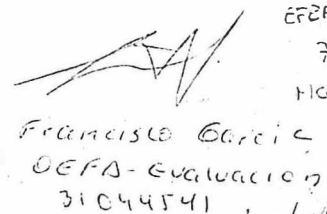 Francisco Garcia
OEFA-Evaluacion
31044541